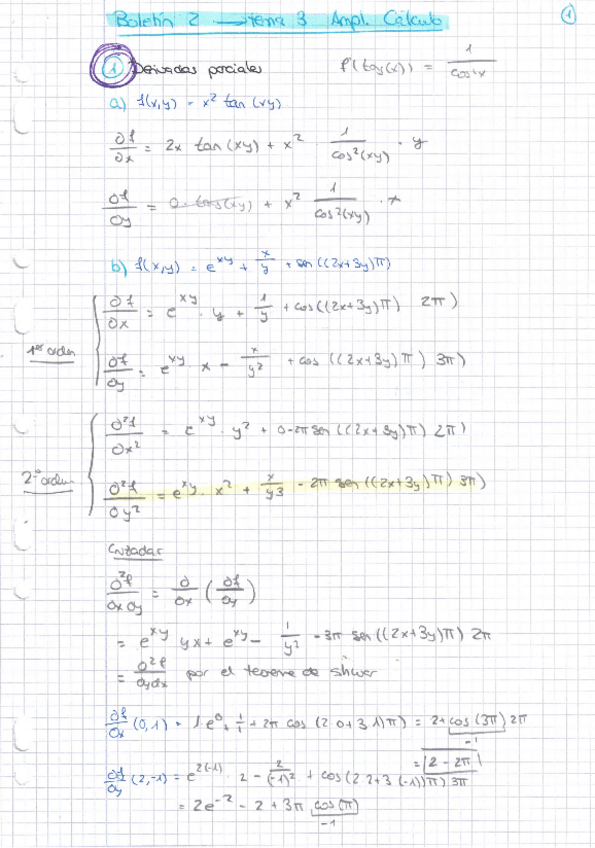 Boletín 2 → tema 3 Ampl. Cálculo
①
① Derivadas parciales f'(tag(x)) = 1/cos²x
a) f(x,y) = x² tan(xy)
∂f/∂x = 2x tan(xy) + x² · 1/cos²(xy) · y
∂f/∂y = 0 · tag(xy) + x² 1/cos²(xy) · x
b) f(x,y) = e^xy + x/y + sen((2x+3y)π)
1er orden
∂f/∂x = e^xy · y + 1/y + cos((2x+3y)π) 2π)
∂f/∂y = e^xy x − x/y² + cos((2x+3y)π) 3π)
2º orden
∂²f/∂x² = e^xy · y² + 0 − 2π sen((2x+3y)π) 2π)
∂²f/∂y² = e^xy · x² + x/y3 − 2π sen((2x+3y)π) 3π)
Cruzadas
∂²f/∂x∂y = ∂/∂x (∂f/∂y)
= e^xy yx + e^xy − 1/y² − 3π sen((2x+3y)π) 2π
= ∂²f/∂y∂x por el teorema de shwer
∂f/∂x (0,1) = 1·e⁰ + 1/1 + 2π cos(2·0+3·1)π) = 2+cos(3π) 2π
−1
= 2−2π
∂f/∂y (2,−1) = e^2(−1) · 2 − 2/(−1)² + cos(2·2+3(−1))π) 3π
= 2e⁻² − 2 + 3π cos(π)
−1